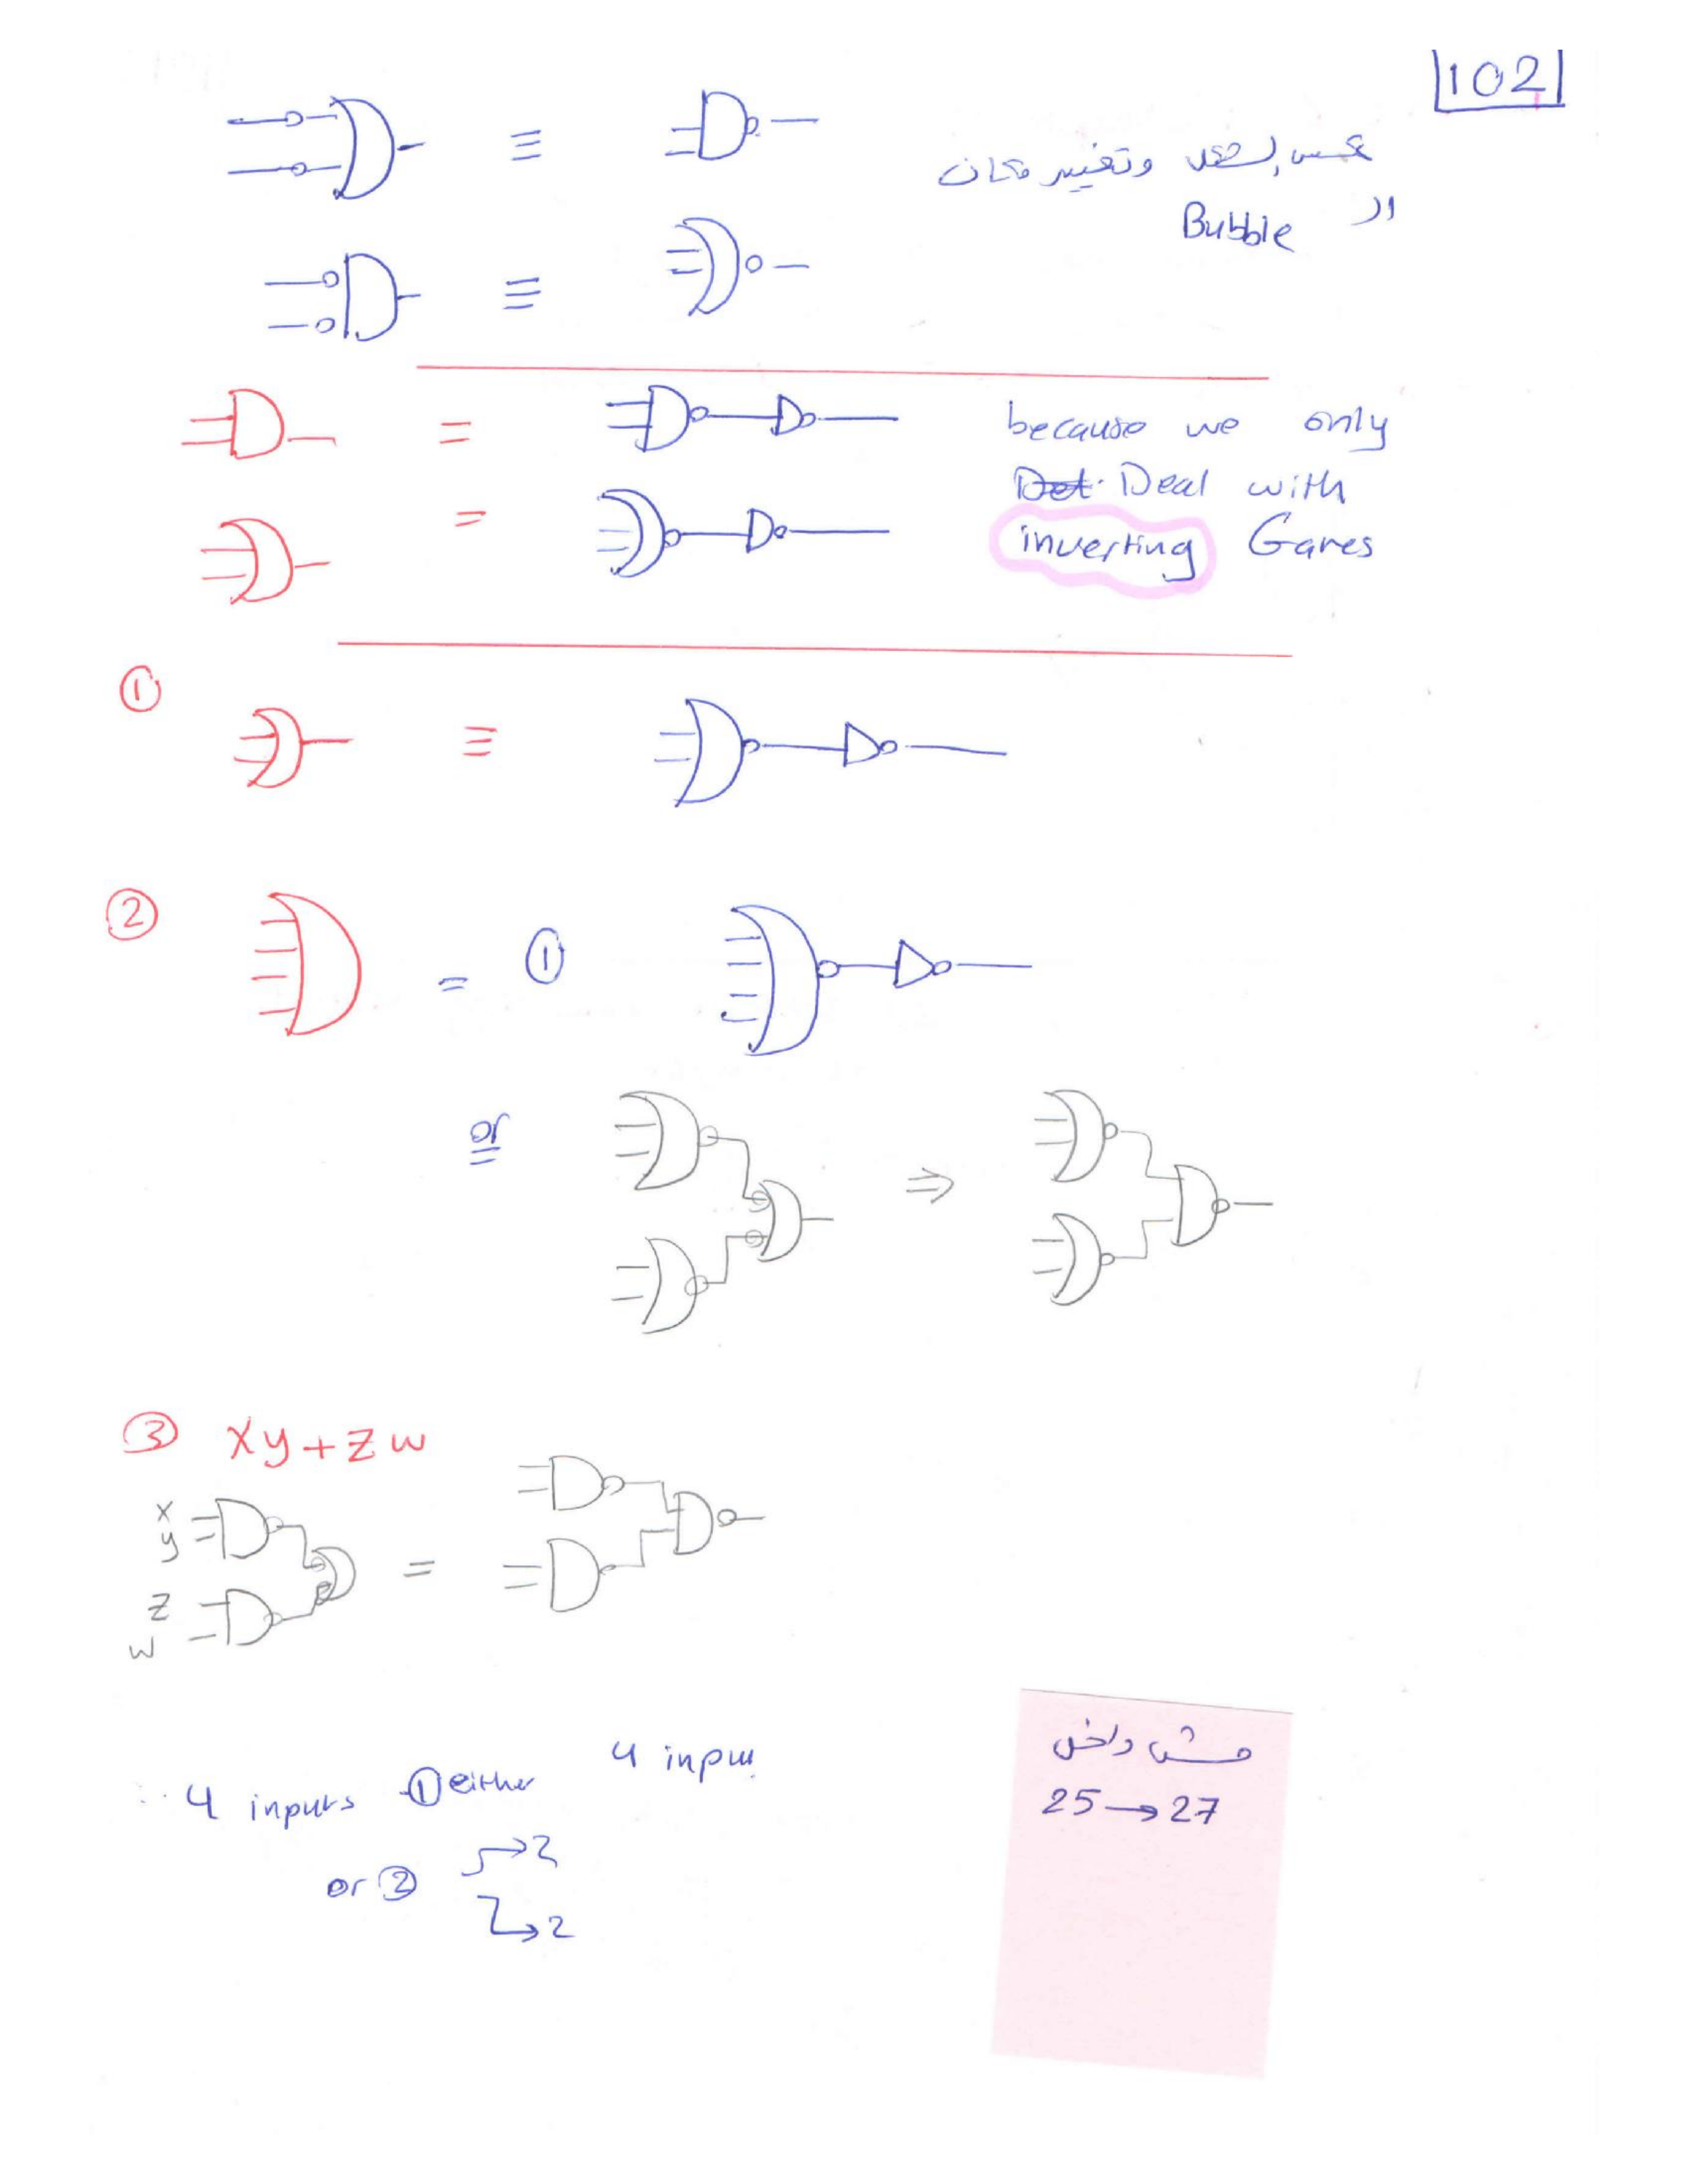 102
عكس الشكل وتغيير مكان
ال Bubble
because we only
Deal with
inverting Gates
①
②
= ①
or
③ xy + zw
x
y
z
w
4 inputs ① either 4 input
or ② → 2
→ 2
مش داخل
25 → 27